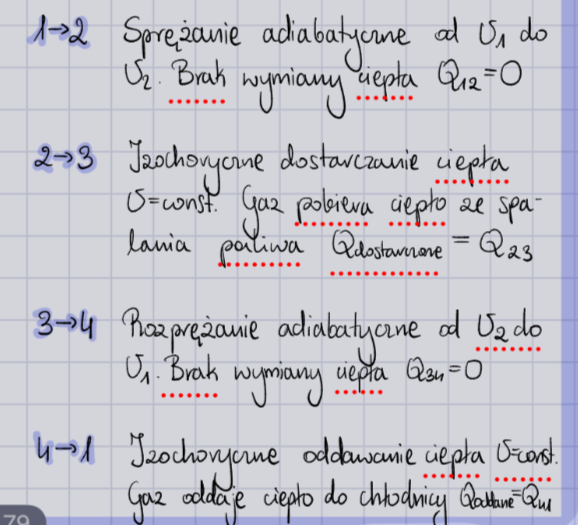 1→2 Sprężanie adiabatyczne od υ₁ do
υ₂. Brak wymiany ciepła Q₁₂=0
2→3 Izochoryczne dostarczanie ciepła
υ=const. Gaz pobiera ciepło ze spa-
lania paliwa Qdostarczone = Q₂₃
3→4 Rozprężanie adiabatyczne od υ₂ do
υ₁. Brak wymiany ciepła Q₃₄=0
4→1 Izochoryczne oddawanie ciepła υ=const.
Gaz oddaje ciepło do chłodnicy Qoddane=Q₄₁
79